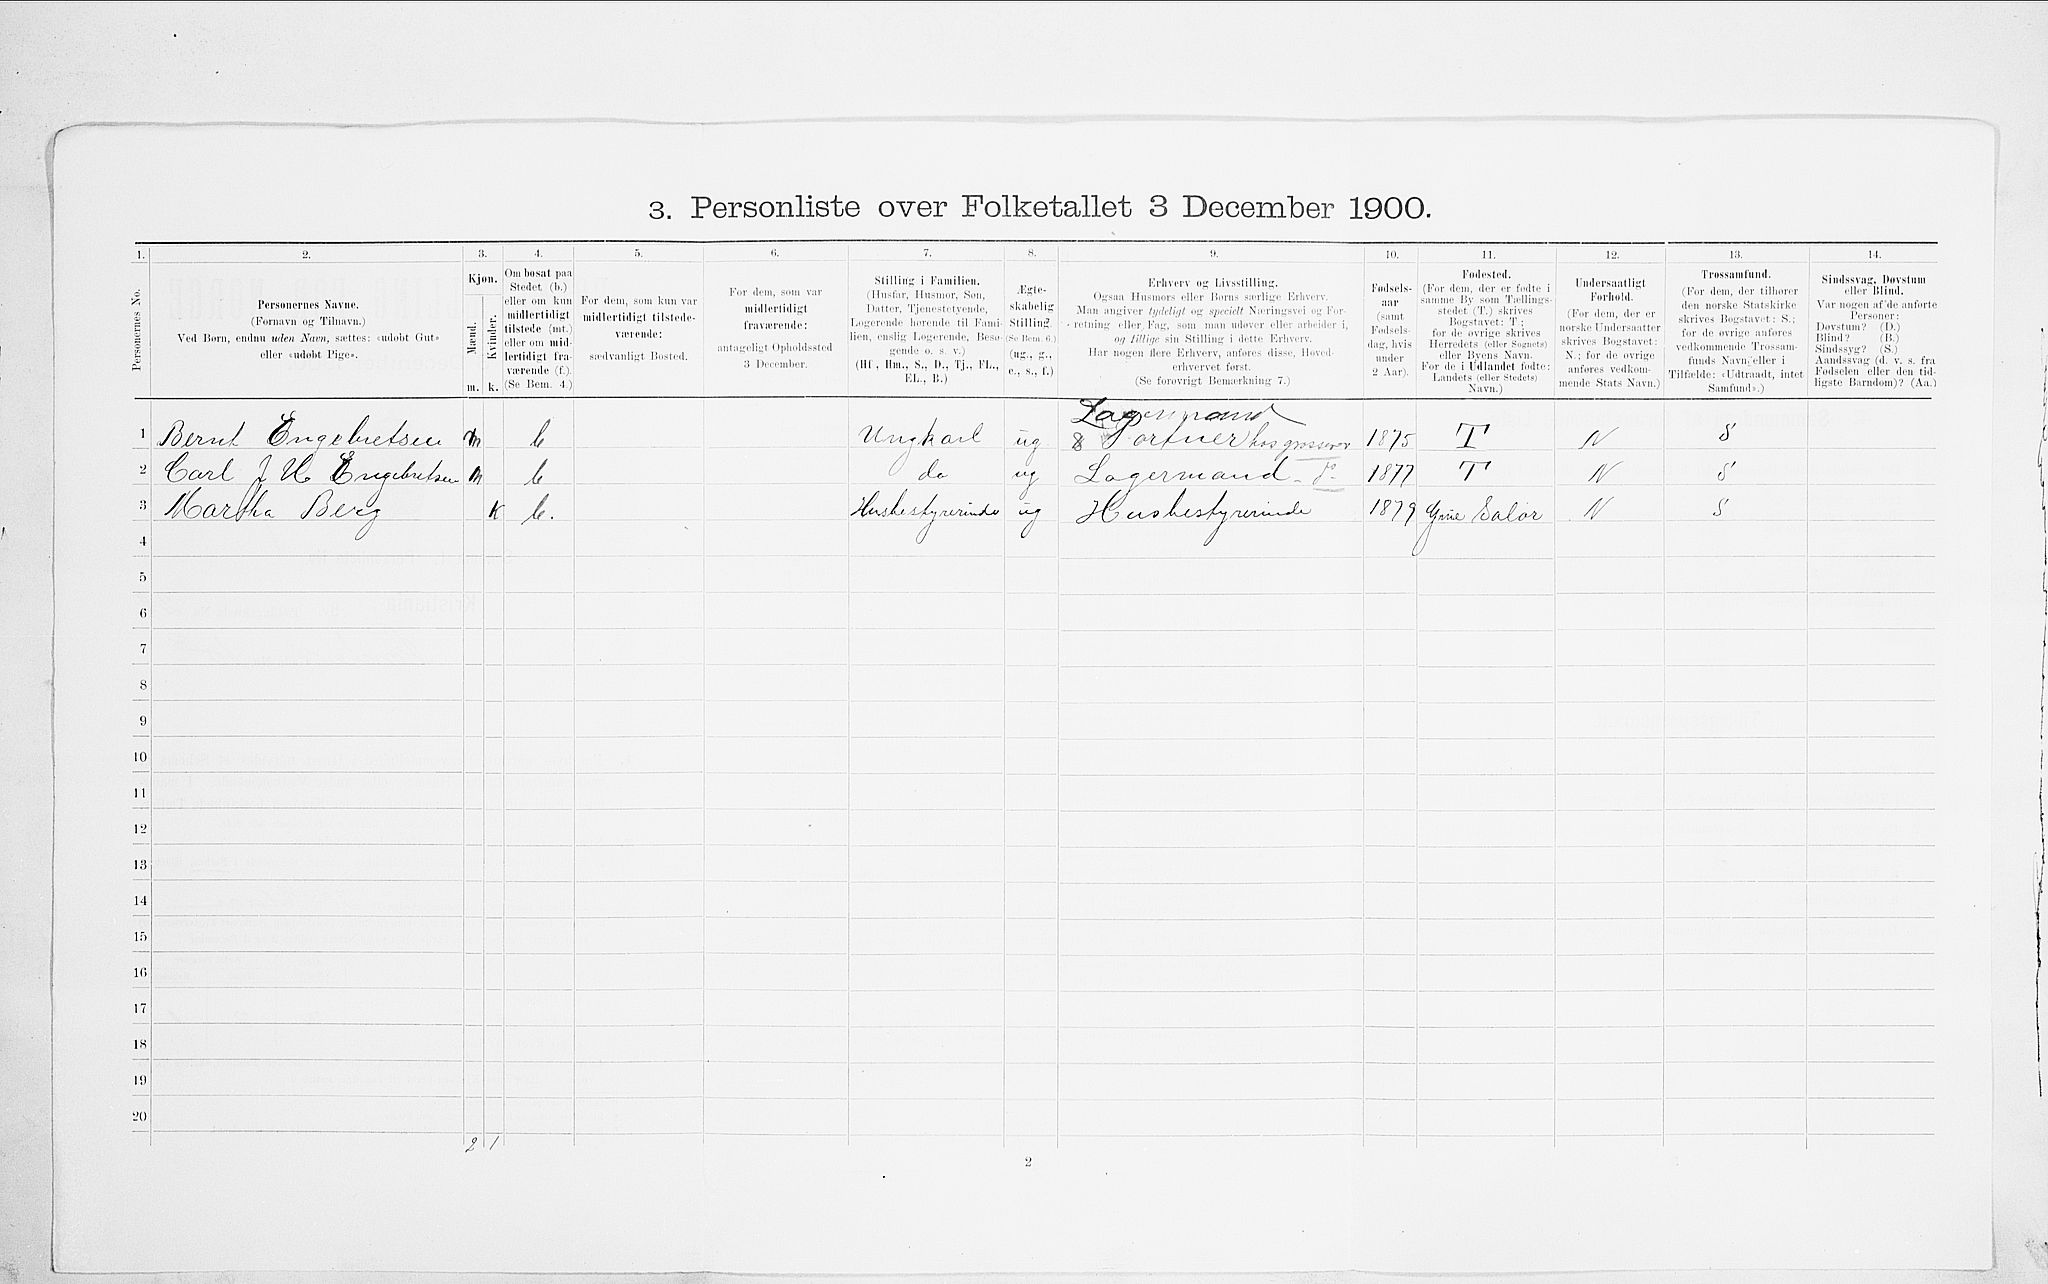 3. Personliste over Folketallet 3 December 1900.
1. 2. 3. 4. 5. 6. 7. 8. 9. 10. 11. 12. 13. 14.
Personernes No.
Personernes Navne.
(Fornavn og Tilnavn.)
Ved Børn, endnu uden Navn, sættes: «udøbt Gut»
eller «udøbt Pige».
Kjøn.
Mænd.
Kvinder.
m. k.
Om bosat paa
Stedet (b.)
eller om kun
midlertidigt
tilstede (mt.)
eller om mid-
lertidigt fra-
værende (f.).
(Se Bem. 4.)
For dem, som kun var
midlertidigt tilstede-
værende:
sædvanligt Bosted.
For dem, som var
midlertidigt
fraværende:
antageligt Opholdssted
3 December.
Stilling i Familien.
(Husfar, Husmor, Søn,
Datter, Tjenestetyende,
Løgerende hørende til Fami-
lien, enslig Løgerende, Besø-
gende o. s. v.)
(Hf., Hm., S., D., Tj., FL.,
EL., B.)
Ægte-
skabelig
Stilling.
(Se Bem. 6.)
(ug., g.,
e., s., f.)
Erhverv og Livsstilling.
Ogsaa Husmors eller Børns særlige Erhverv.
Man angiver tydeligt og specielt Næringsvei og For-
retning eller Fag, som man udøver eller arbeider i,
og tillige sin Stilling i dette Erhverv.
Har nogen flere Erhverv, anføres disse, Hoved-
erhvervet først.
(Se forøvrigt Bemærkning 7.)
Fødsels-
aar
(samt
Fødsels-
dag, hvis
under
2 Aar).
Fødested.
(For dem, der er fødte i
samme By som Tællings-
stedet (T.) skrives
Bogstavet: T;
for de øvrige skrives
Herredets (eller Sognets)
eller Byens Navn.
For de i Udlandet fødte:
Landets (eller Stedets)
Navn.)
Undersaatligt
Forhold.
(For dem, der er
norske Undersaatter
skrives Bogstavet:
N.; for de øvrige
anføres vedkom-
mende Stats Navn.)
Trossamfund.
(For dem, der tilhører
den norske Statskirke
skrives Bogstavet: S.;
for de øvrige anføres
vedkommende Trossam-
funds Navn, eller i
Tilfælde: «Udtraadt, intet
Samfund».)
Sindssvag, Døvstum
eller Blind.
Var nogen af de anførte
Personer:
Døvstum? (D.)
Blind? (B.)
Sindssyg? (S.)
Aandssvag (d. v. s. fra
Fødselen eller den tid-
ligste Barndom)? (Aa.)
Lagermand
1 Bernt Engebretsen m b Ungkarl ug Portner hos grosserer 1875 T N S
2 Carl J H Engebretsen m b do ug Lagermand - do 1877 T N S
3 Martha Berg k b. Husbestyrerinde ug Husbestyrerinde 1879 Grue Solør N S
4
5
6
7
8
9
10
11
12
13
14
15
16
17
18
19
20
2 1
2